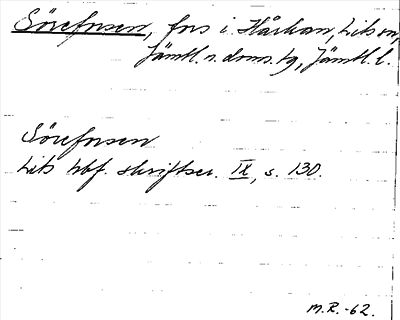 Söreforsen, fors i Hårkan, Lits sn,
Jämtl. n. doms. tg, Jämtl. l.
Söreforsen
Lits hbf. skriftser. IX, s. 130.
M.R.-62.